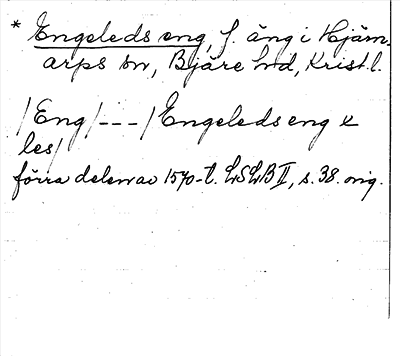 * Engeleds eng, f. äng i Hjärn-
arps sn, Bjäre hd, Krist. l.
/Eng/---/Engeleds eng x
les/
förra delen av 1570-t. LSLB II, s. 38. orig.